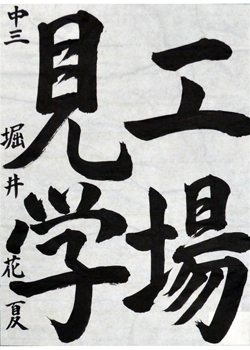 工場
見学
中三 堀井花夏